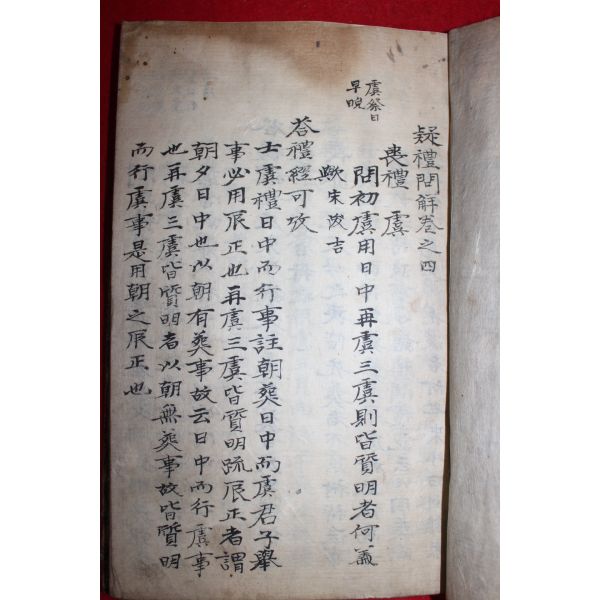 疑禮問解卷之四
喪禮 虞
虞祭日
早晚
問初虞用日中再虞三虞則皆質明者何義
歟宋浚吉
答禮經可攷
士虞禮日中而行事註朝葬日中而虞君子舉
事必用辰正也再虞三虞皆質明疏辰正者謂
朝夕日中也以朝有葬事故云日中而行虞事
也再虞三虞皆質明者以朝無葬事故皆質明
而行虞事是用朝之辰正也